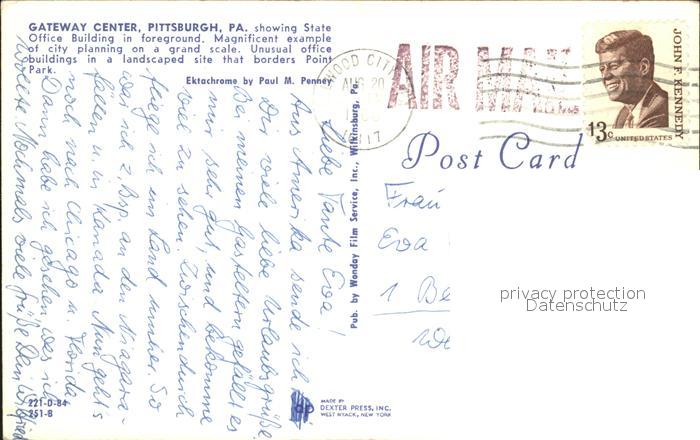 GATEWAY CENTER, PITTSBURGH, PA. showing State
Office Building in foreground. Magnificent example
of city planning on a grand scale. Unusual office
buildings in a landscaped site that borders Point
Park.
Ektachrome by Paul M. Penney
AIR MAIL
AUG 20
JOHN F. KENNEDY
13c UNITED STATES
Post Card
Liebe Tante Eva!
Aus Amerika sende ich
Dir viele liebe Urlaubsgrüße.
B meinen Gasteltern gefällt es
mir sehr gut, und bekomme
viel zu sehen. Zwischendurch
fliege ich im Land umher. So
war ich z.Bsp. an den Niagara-
fällen in Kanada. Nun geht's
noch nach Chicago u. Florida.
Dann habe ich gesehen was ich
wollte. Nochmals viele Grüße Dein Wilfried
Pub. by Wonday Film Service, Inc., Wilkinsburg, Pa.
Frau
Eva
1 Be
We
privacy protection
Datenschutz
221-D-84
251-B
dp
MADE BY
DEXTER PRESS, INC.
WEST NYACK, NEW YORK